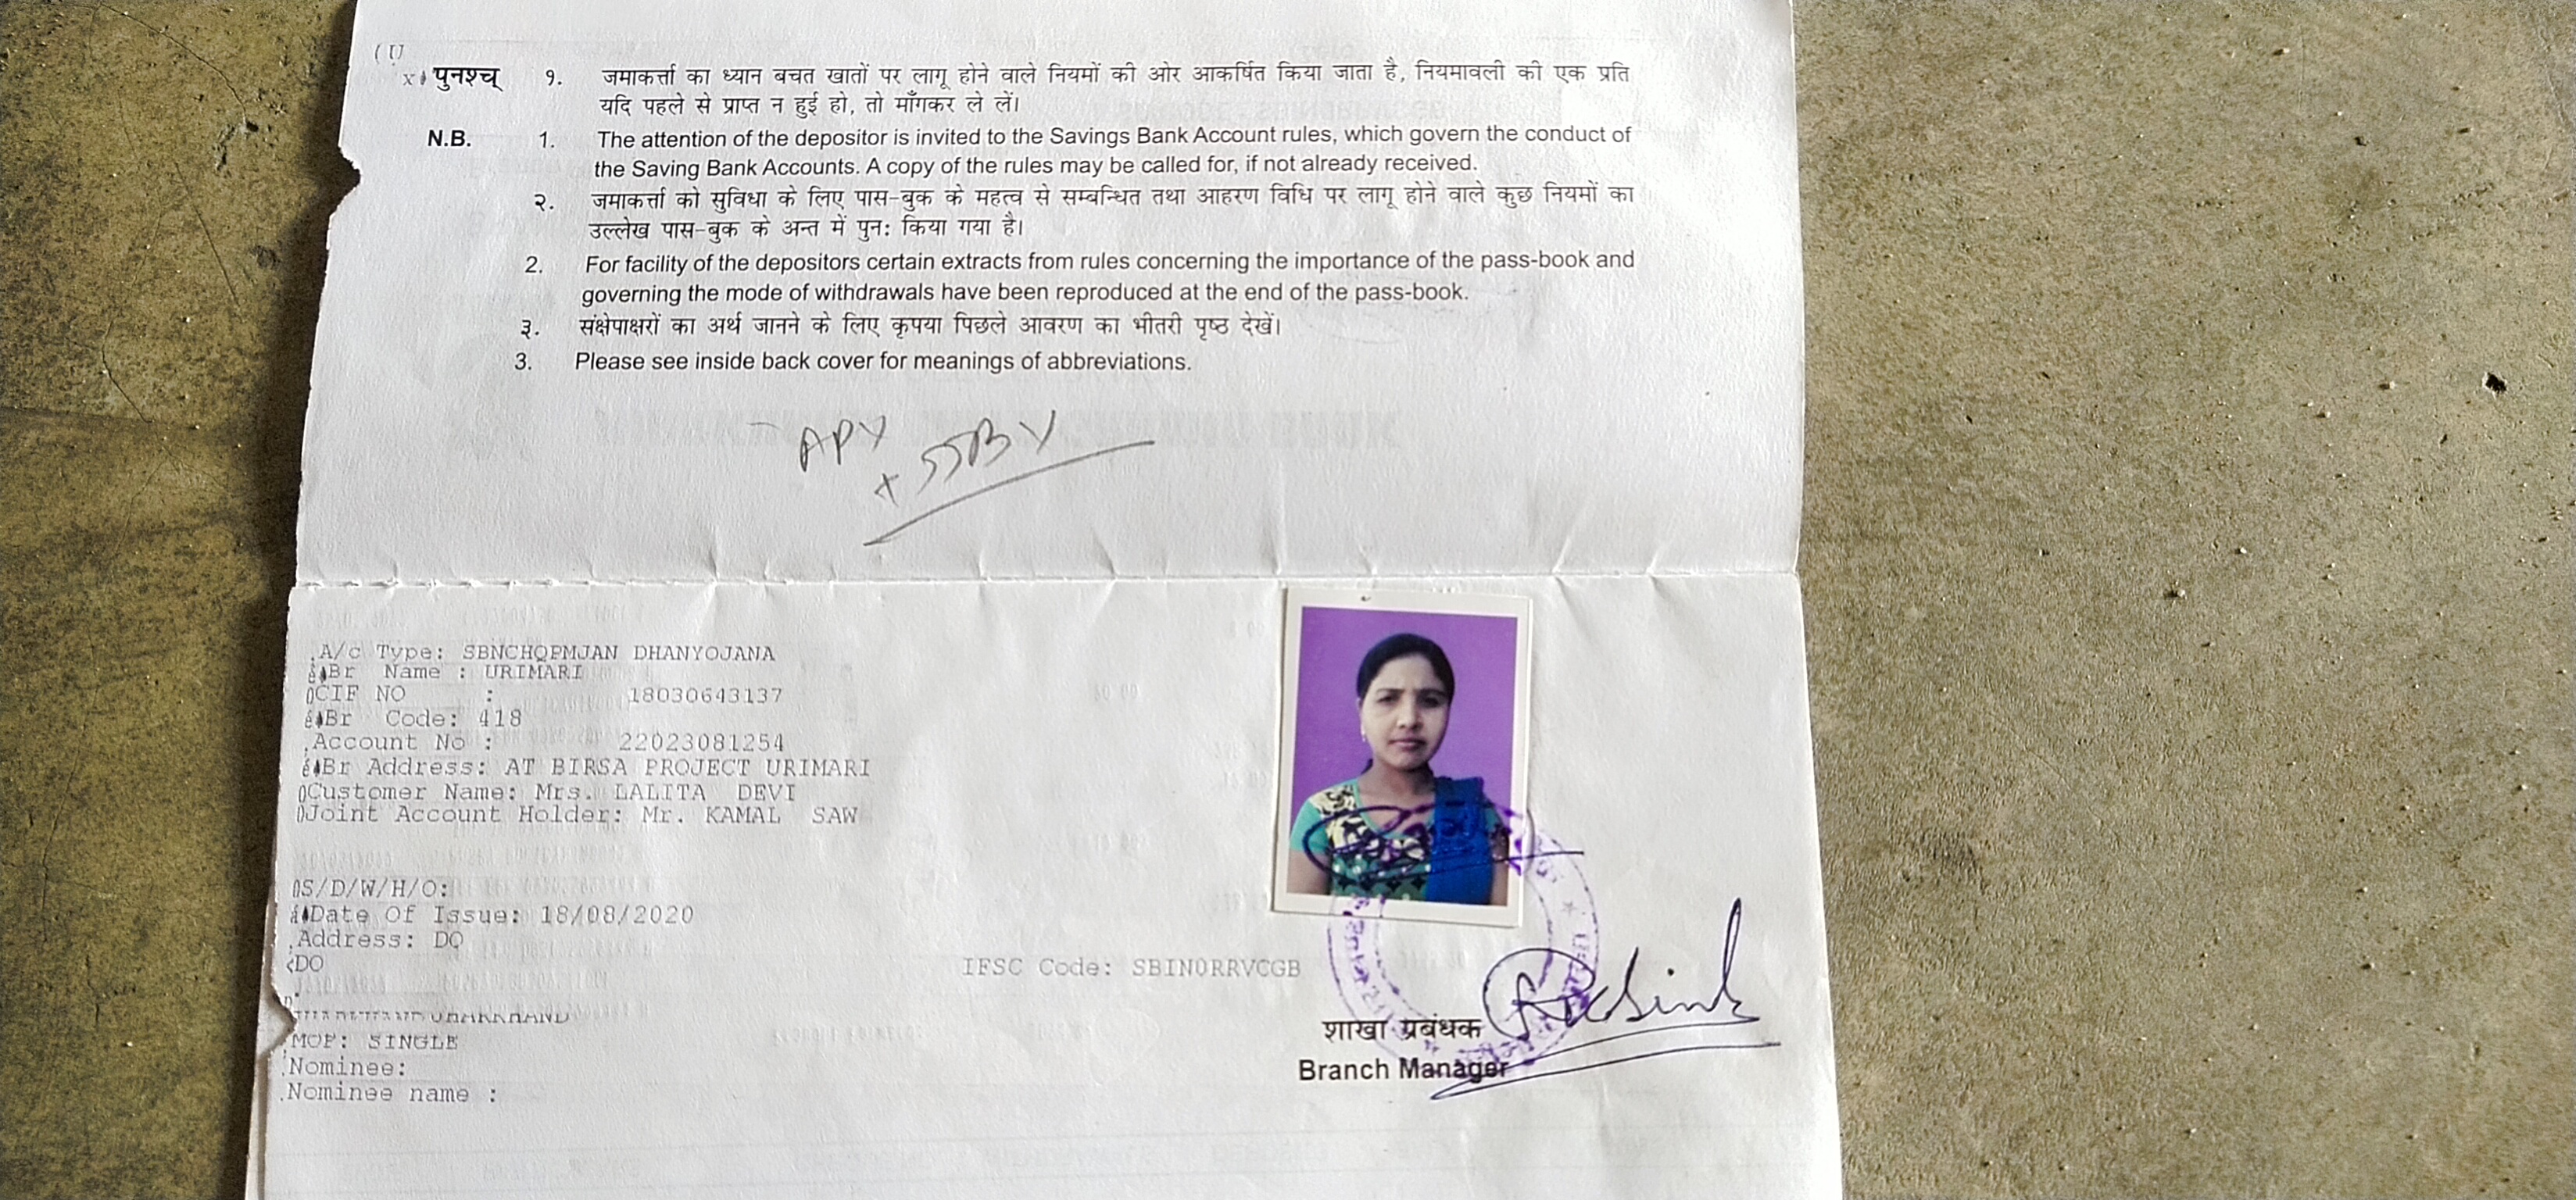 पुनश्च् १. जमाकर्त्ता का ध्यान बचत खातों पर लागू होने वाले नियमों की ओर आकर्षित किया जाता है, नियमावली की एक प्रति
यदि पहले से प्राप्त न हुई हो, तो माँगकर ले लें।
N.B. 1. The attention of the depositor is invited to the Savings Bank Account rules, which govern the conduct of
the Saving Bank Accounts. A copy of the rules may be called for, if not already received.
२. जमाकर्त्ता को सुविधा के लिए पास-बुक के महत्व से सम्बन्धित तथा आहरण विधि पर लागू होने वाले कुछ नियमों का
उल्लेख पास-बुक के अन्त में पुन: किया गया है।
2. For facility of the depositors certain extracts from rules concerning the importance of the pass-book and
governing the mode of withdrawals have been reproduced at the end of the pass-book.
३. संक्षेपाक्षरों का अर्थ जानने के लिए कृपया पिछले आवरण का भीतरी पृष्ठ देखें।
3. Please see inside back cover for meanings of abbreviations.
APY
+ SSBY
A/c Type: SBNCHQPMJAN DHANYOJANA
Br Name : URIMARI
CIF NO : 18030643137
Br Code: 418
Account No : 22023081254
Br Address: AT BIRSA PROJECT URIMARI
Customer Name: Mrs. LALITA DEVI
Joint Account Holder: Mr. KAMAL SAW
S/D/W/H/O:
Date Of Issue: 18/08/2020
Address: DO
DO
IFSC Code: SBIN0RRVCGB
JHARKHAND
MOP: SINGLE
Nominee:
Nominee name :
शाखा प्रबंधक
Branch Manager